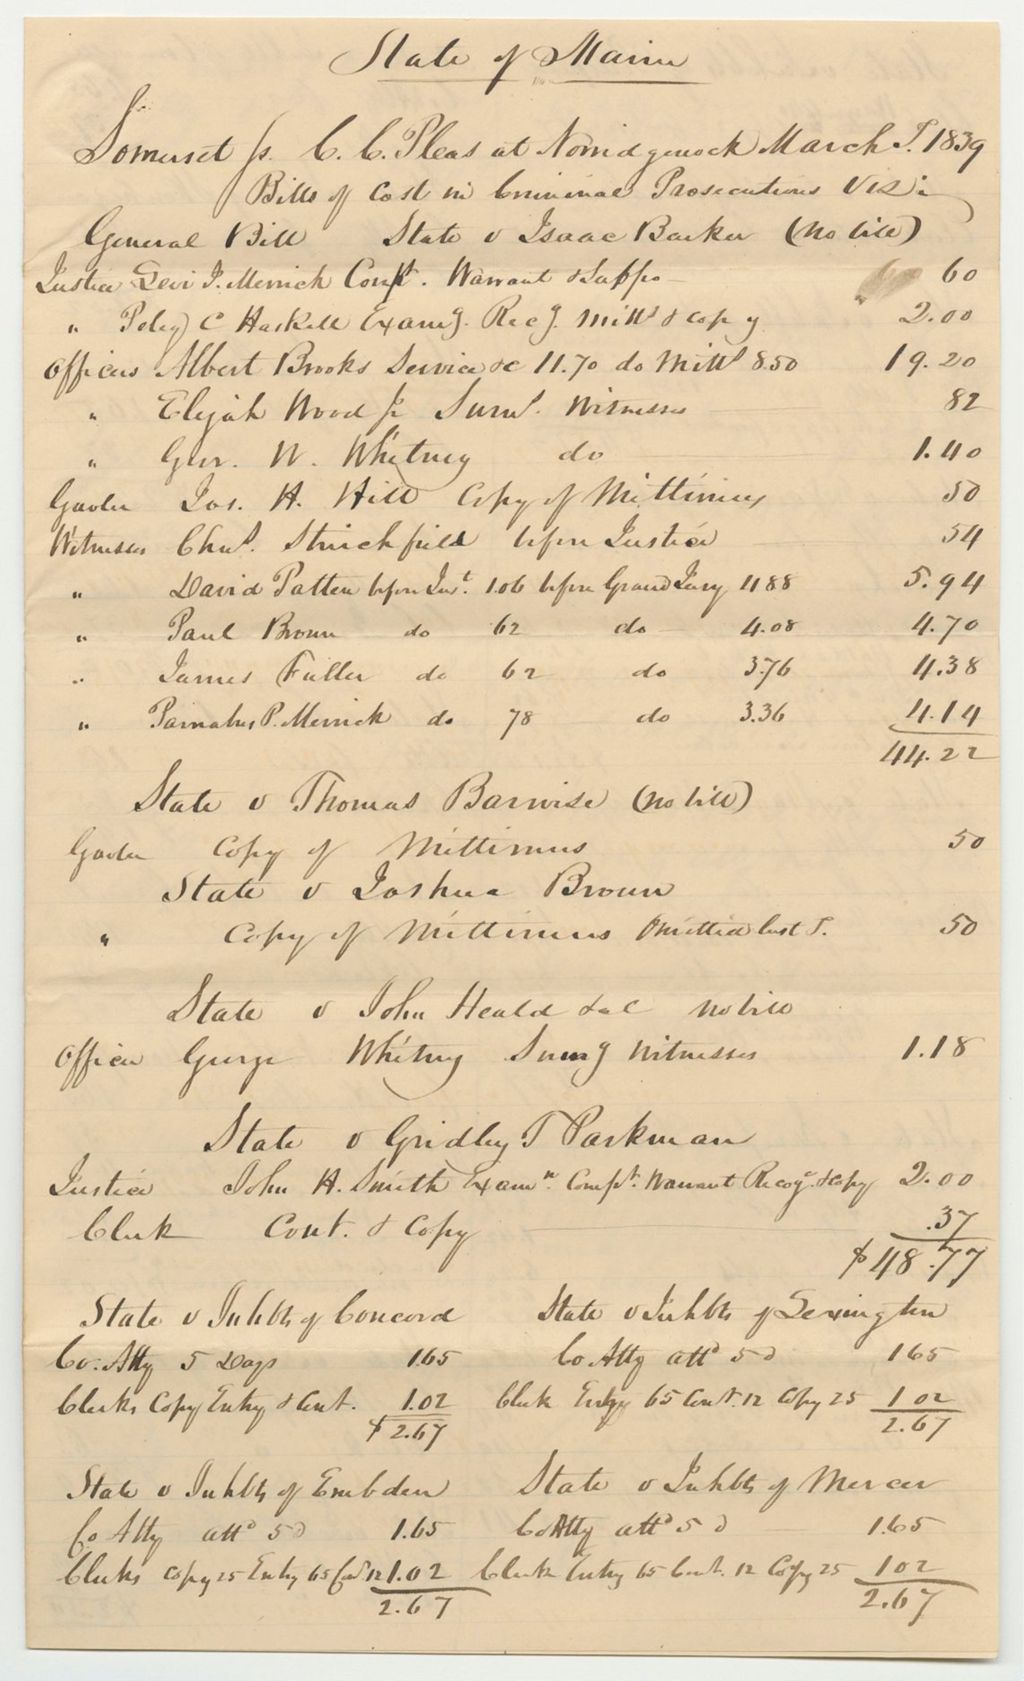 State of Maine
Somerset ss. C. C. Pleas at Norridgewock March T. 1839
Bills of Cost in Criminal Prosecutions Viz:
General Bill State v Isaac Barker (no bill)
Justice Levi J. Merrick Compt. Warrant & Suppo 60
" C Haskell Examg. Recg. Mitts & copy 2.00
Officers Albert Brooks Service &c 11.70 do Mitts 8.50 19.20
" Elijah Wood Jr Sumg. Witnesses 82
" Geo. W. Whitney do 1.40
Gaoler Jos. H. Hill Copy of Mittimus 50
Witnesses Chas. Stinchfield before Justice 54
" David Patten before Jus. 1.06 before Grand Jury 4.88 5.94
" Paul Brown do 62 do 4.08 4.70
" James Fuller do 62 do 3.76 4.38
" P. Merrick do 78 do 3.36 4.14
44.22
State v Thomas Barwise (no bill)
Gaoler Copy of Mittimus 50
State v Joshua Brown
" Copy of Mittimus omitted last T. 50
State v John Heald & al no bill
Officer George Whitney Sumg Witnesses 1.18
State v Gridley T Parkman
Justice John H. Smith Examn. Compt. Warrant Recog. & copy 2.00
Clerk Cont. & Copy .37
$48.77
State v Inhbts of Concord State v Inhbts of Lexington
Co. Atty 5 Days 1.65 Co Atty attd 5 d 1.65
Clerks Copy Entry & Cont. 1.02 Clerk Entry 65 Cont. 12 Copy 25 1 02
$2.67 2.67
State v Inhbts of Embden State v Inhbts of Mercer
Co Atty attd 5 d 1.65 Co Atty attd 5 d 1.65
Clerks copy 25 Entry 65 Cont 12 1.02 Clerk Entry 65 Cont. 12 Copy 25 1 02
2.67 2.67